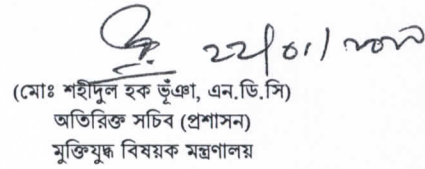 ২২/০১/২০২০
(মোঃ শহীদুল হক ভূঁঞা, এন.ডি.সি)
অতিরিক্ত সচিব (প্রশাসন)
মুক্তিযুদ্ধ বিষয়ক মন্ত্রণালয়